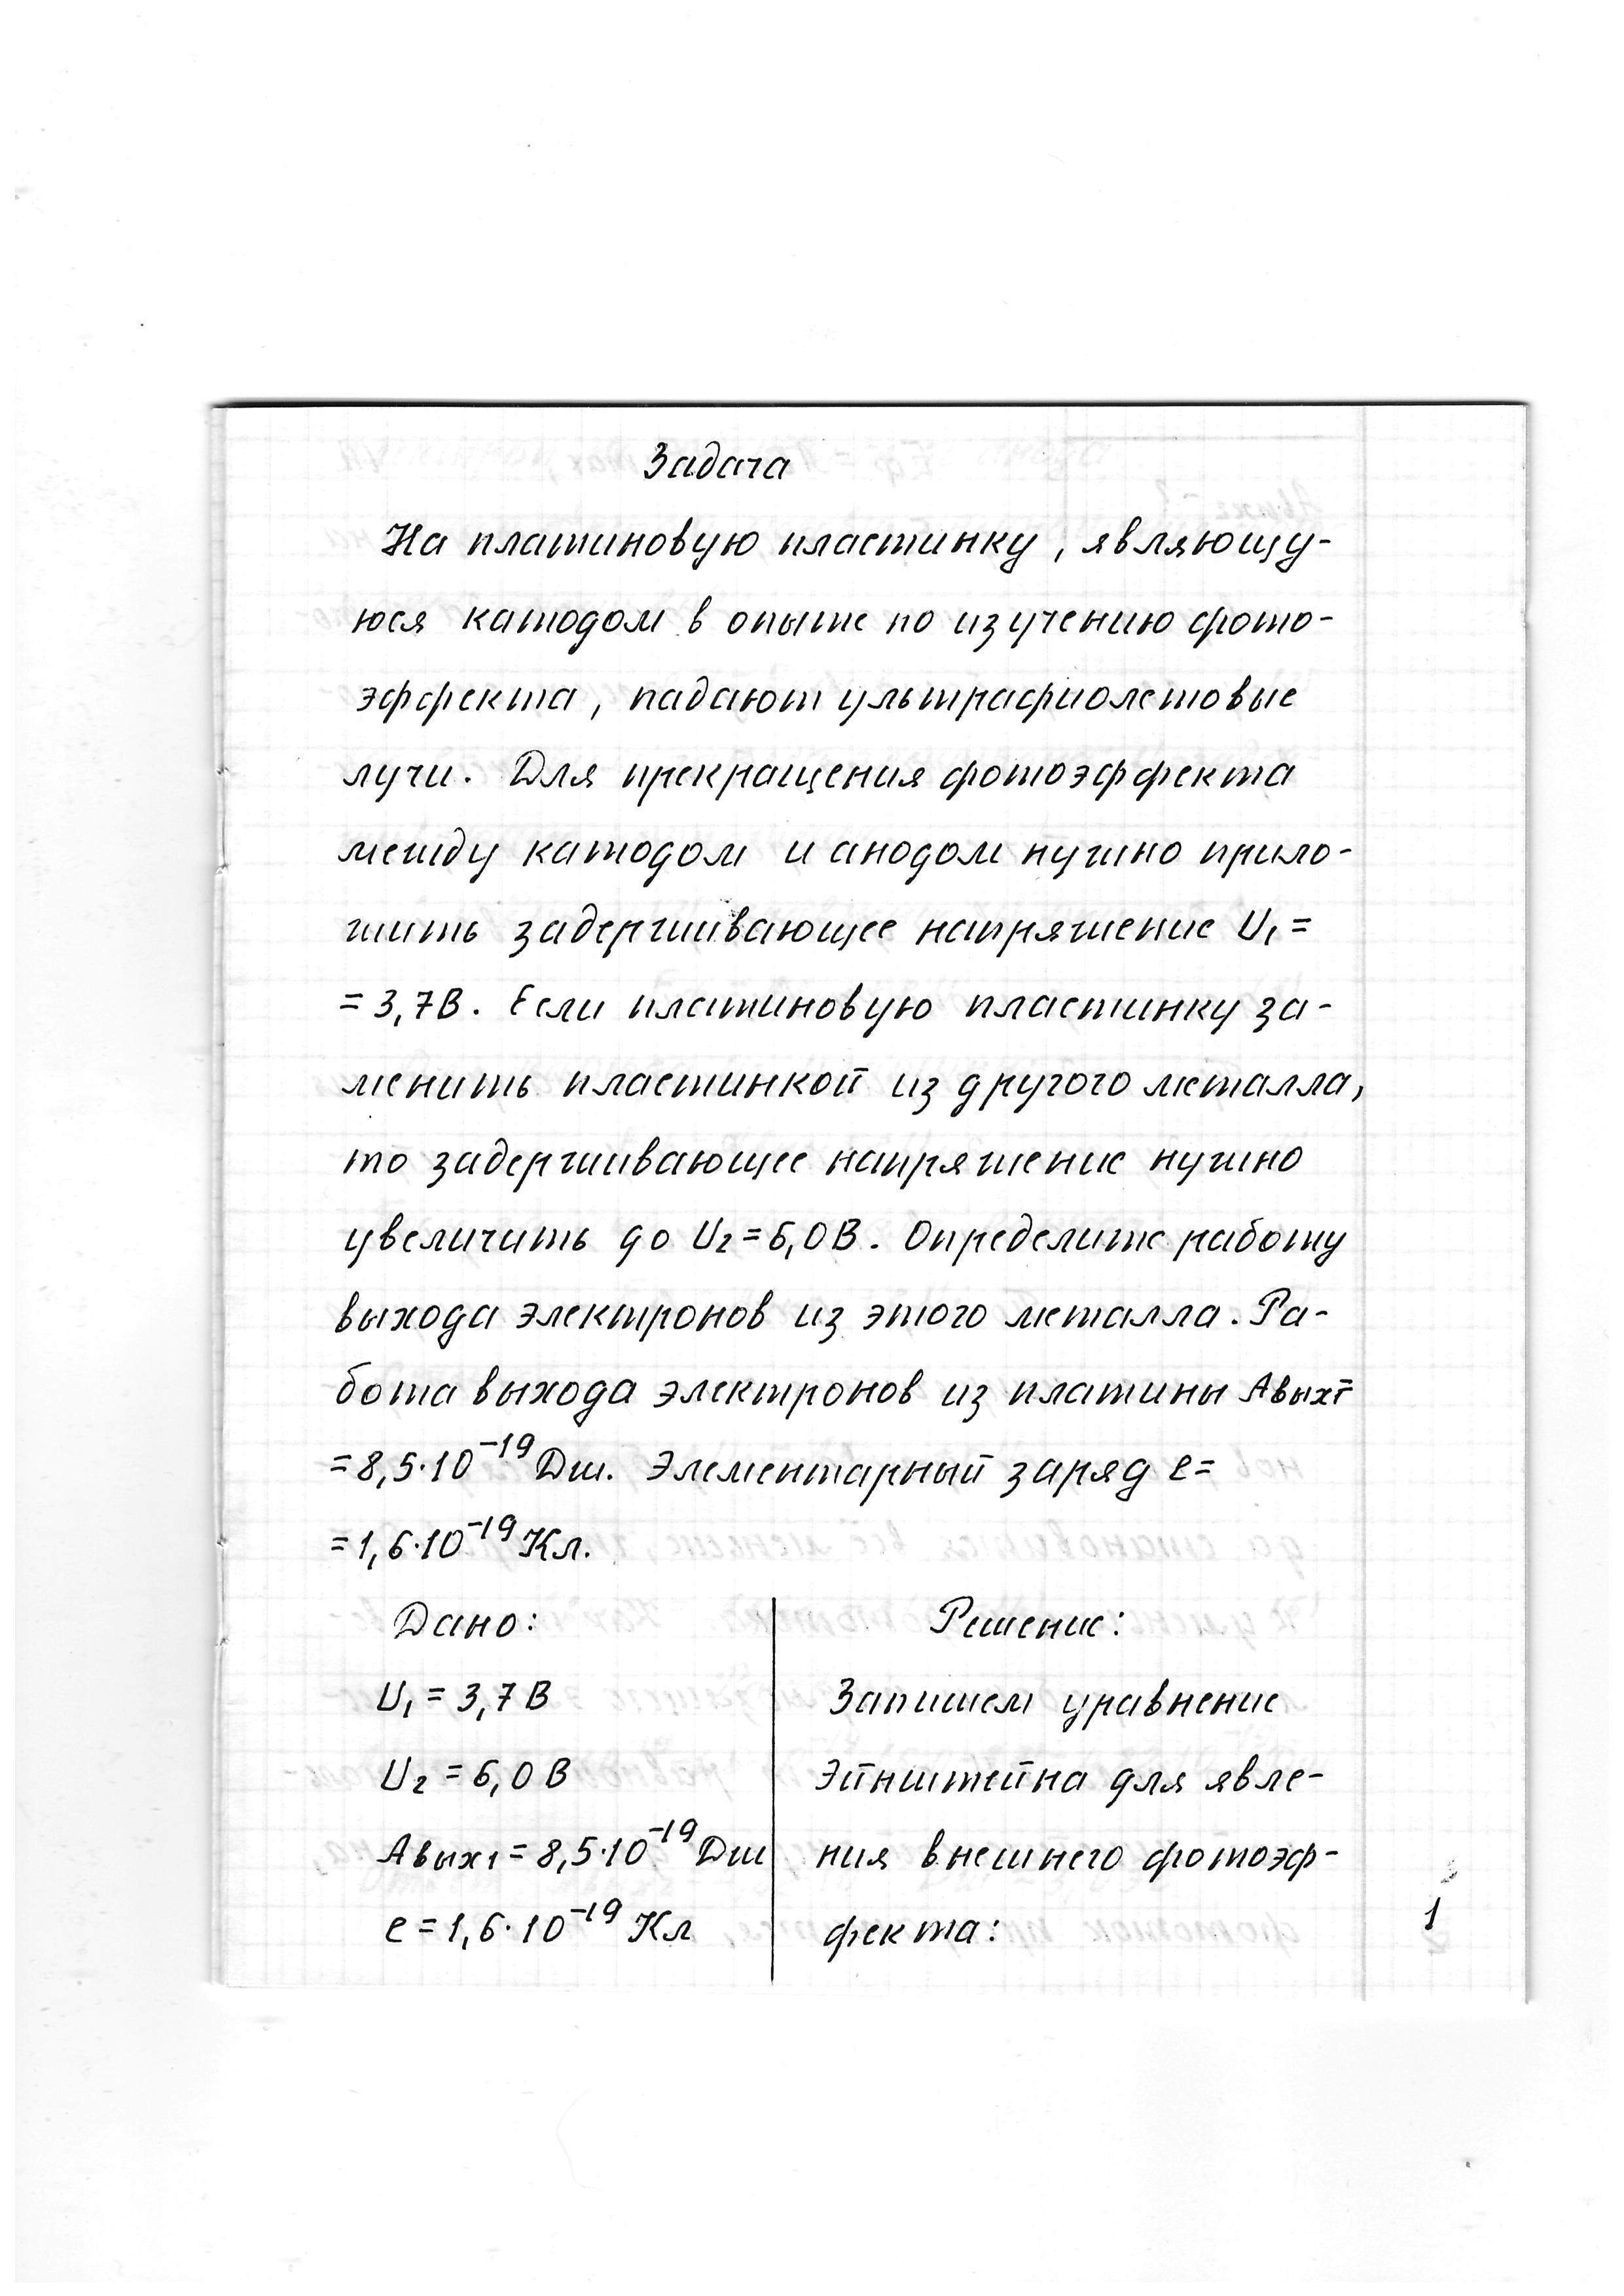 Задача
На платиновую пластинку, являющу-
юся катодом в опыте по изучению фото-
эффекта, падают ультрафиолетовые
лучи. Для прекращения фотоэффекта
между катодом и анодом нужно прило-
жить задерживающее напряжение U₁ =
= 3,7 В. Если платиновую пластинку за-
менить пластинкой из другого металла,
то задерживающее напряжение нужно
увеличить до U₂ = 6,0 В. Определите работу
выхода электронов из этого металла. Ра-
бота выхода электронов из платины Aвых1 =
= 8,5·10⁻¹⁹ Дж. Элементарный заряд e =
= 1,6·10⁻¹⁹ Кл.
Дано:
U₁ = 3,7 В
U₂ = 6,0 В
Aвых1 = 8,5·10⁻¹⁹ Дж
e = 1,6·10⁻¹⁹ Кл
Решение:
Запишем уравнение
Эйнштейна для явле-
ния внешнего фотоэф-
фекта:
1